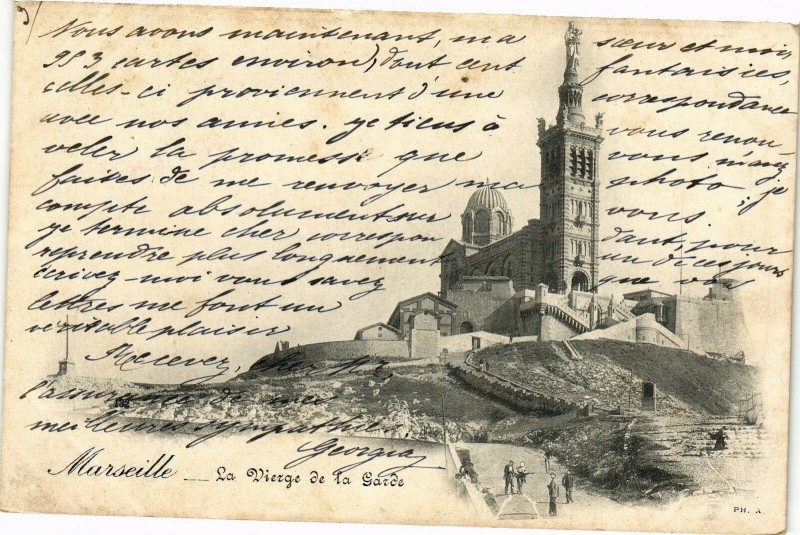 Nous avons maintenant, ma sœur et moi,
953 cartes environ, dont cent fantaisies,
celles-ci proviennent d'une correspondance
avec nos amies. je tiens à vous renou-
veler la promesse que vous m'avez
faites de me renvoyer ma photo, je
compte absolument sur vous.
je termine cher correspondant, pour
reprendre plus longuement un de ces jours
écrivez-moi vous savez que vos
lettres me font un
véritable plaisir
Recevez, cher
l'assurance de mes
meilleures sympathies.
Georgia
Marseille — La Vierge de la Garde
PH. A.